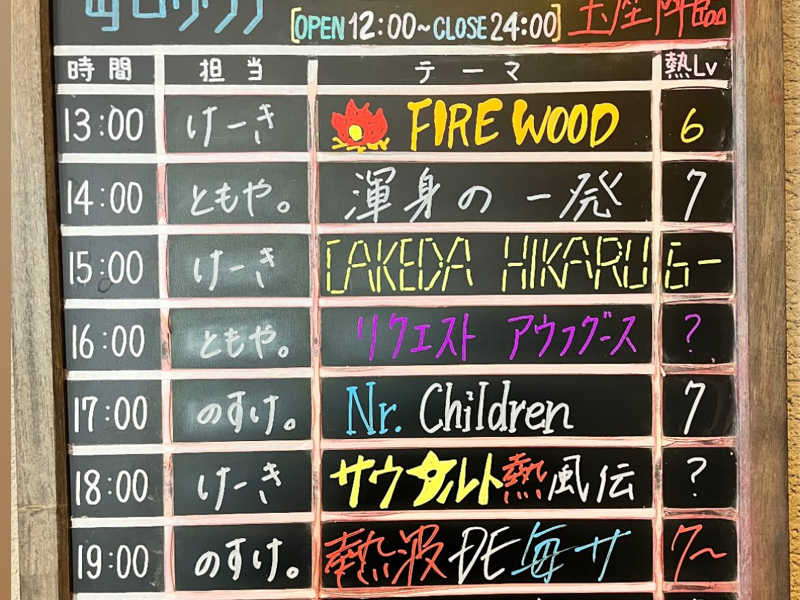 毎日サウナ [OPEN 12:00~CLOSE 24:00] 玉座降臨
時間 担当 テーマ 熱Lv
13:00 けーき FIRE WOOD 6
14:00 ともや。 渾身の一発 7
15:00 けーき TAKEDA HIKARU 6-
16:00 ともや。 リクエスト アウフグース ?
17:00 のすけ。 Nr. Children 7
18:00 けーき サウナルト熱風伝 ?
19:00 のすけ。 熱波DE毎サ 7~